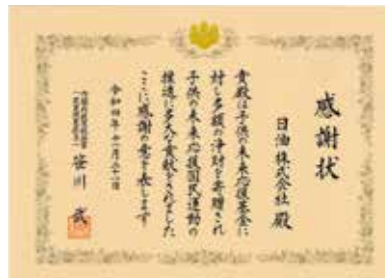 感謝状
日油株式会社 殿
貴殿は子供の未来応援基金に
対し多額の浄財を寄贈され
子供の未来応援国民運動の
推進に多大な貢献をされました
ここに感謝の意を表します
令和四年十一月二十一日
笹川 武